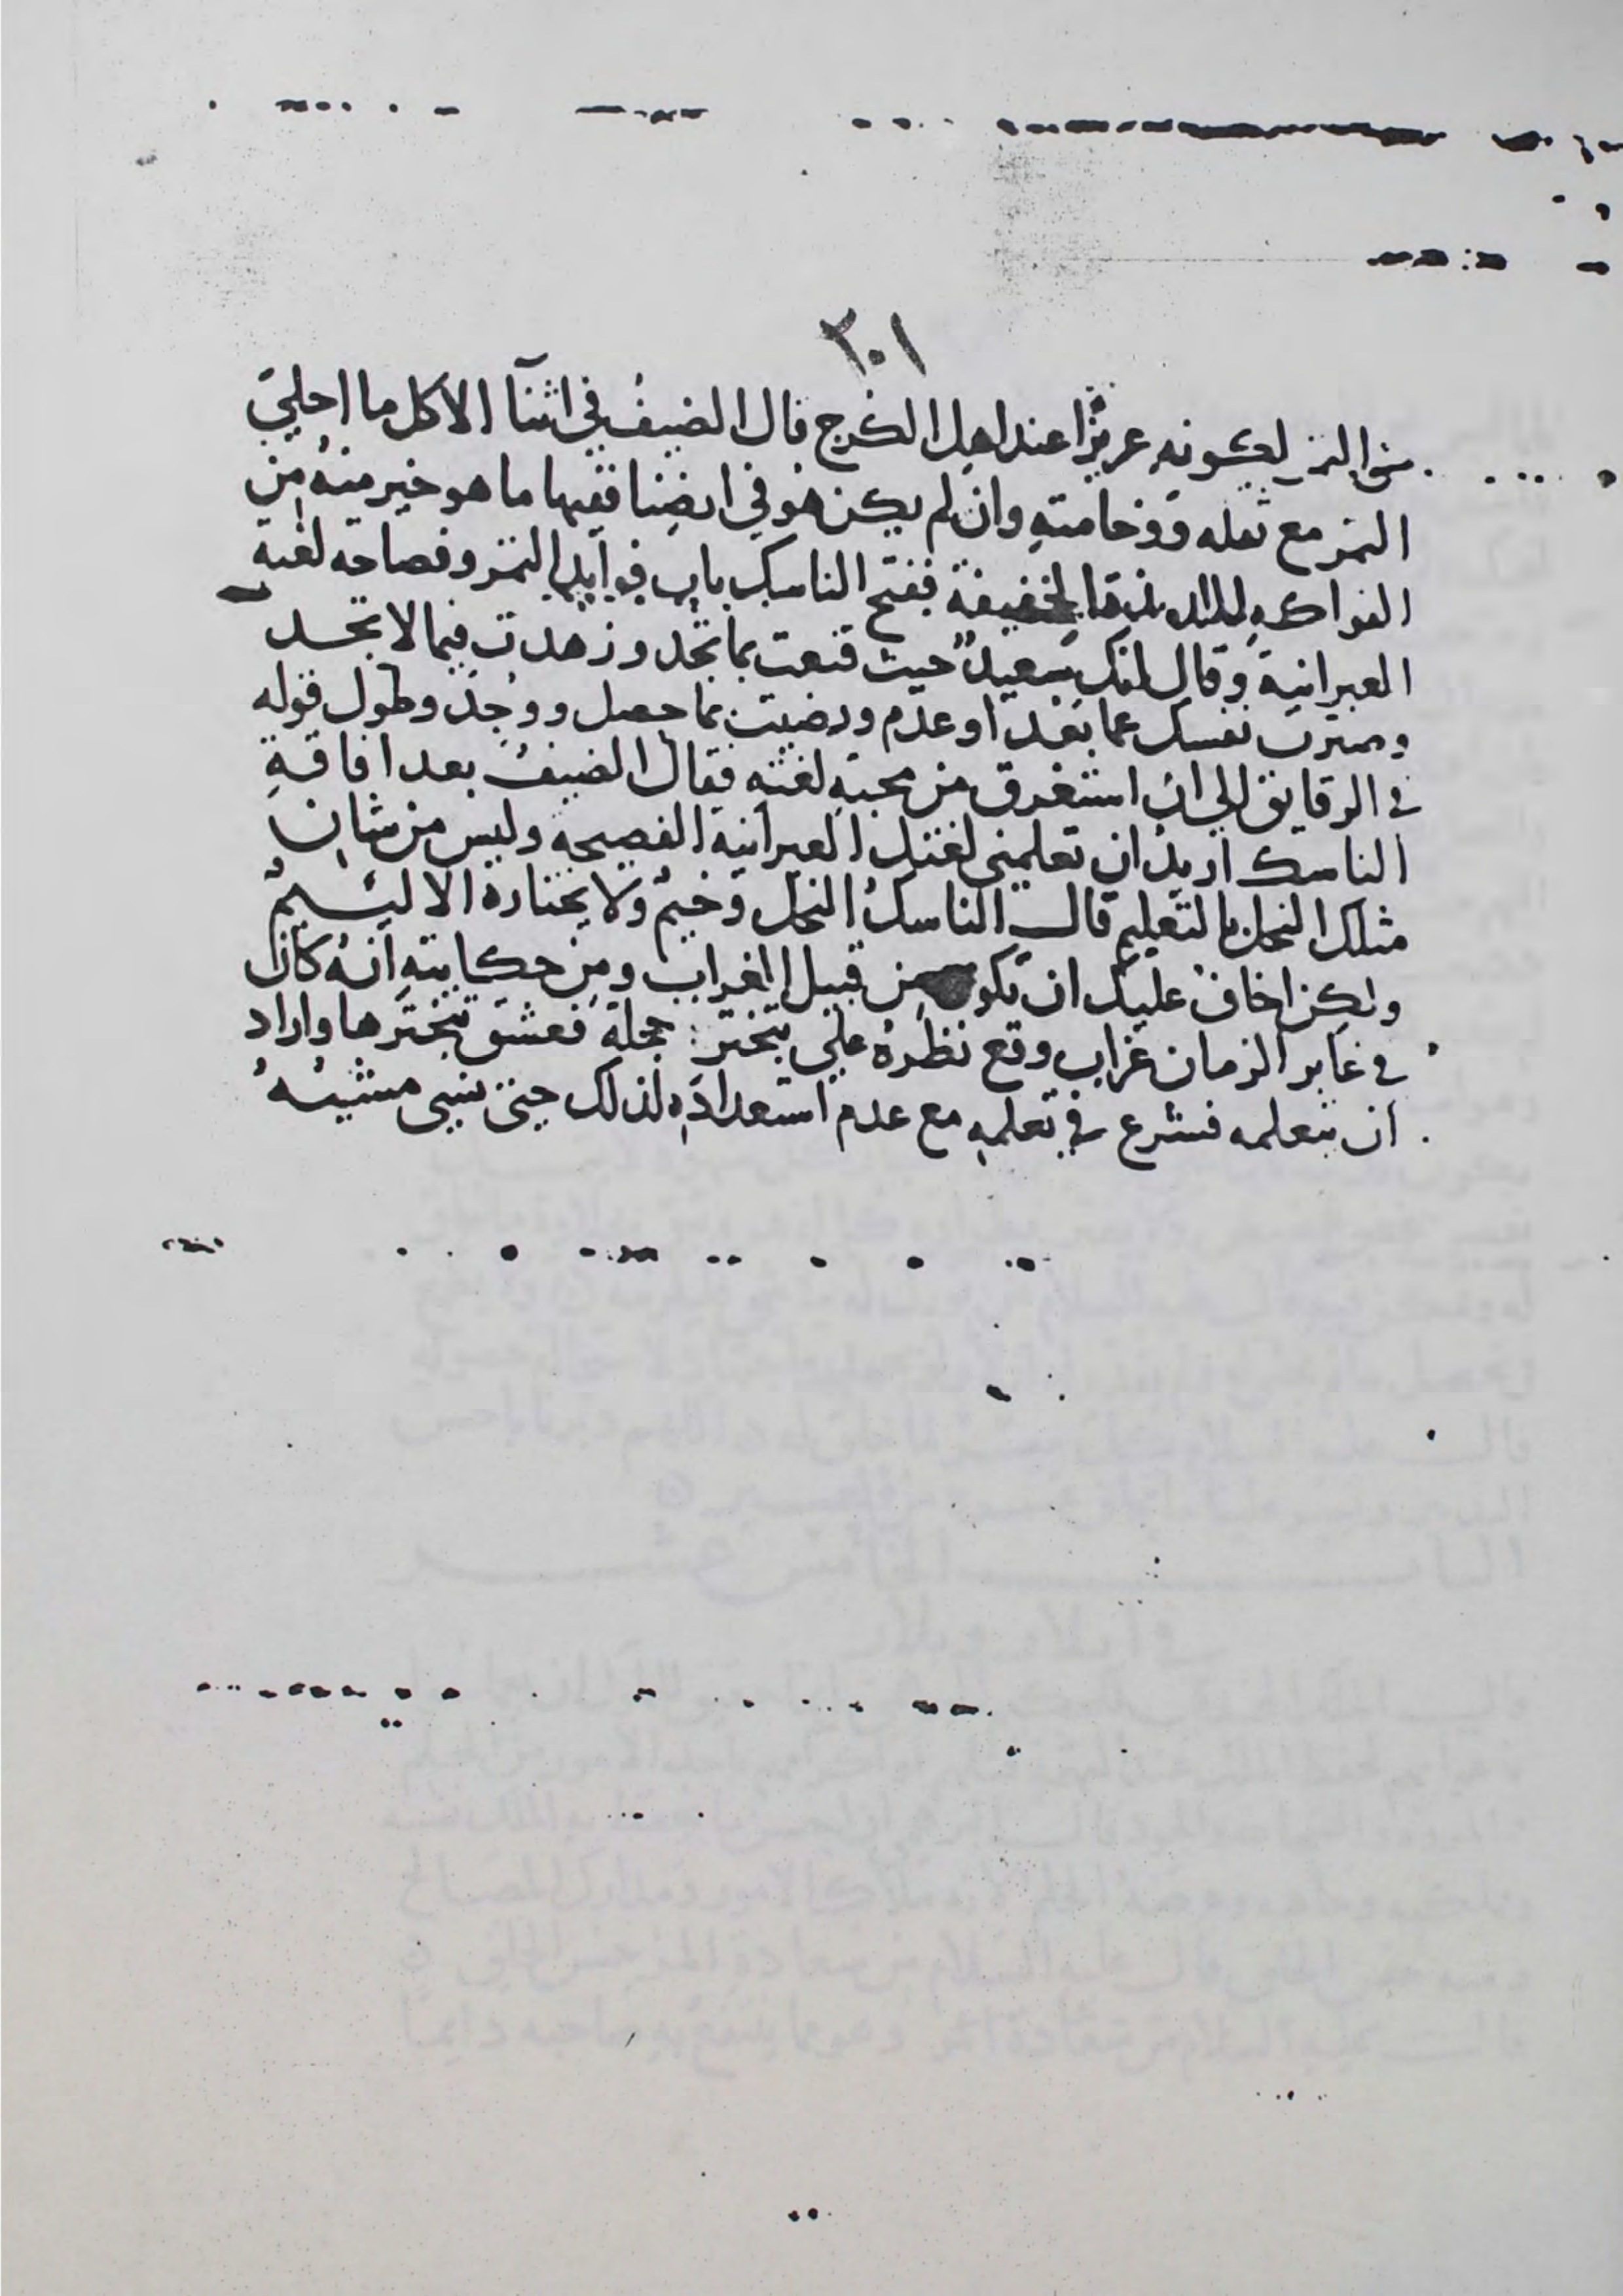 ٣٠١
من التمر لكونه عزيزا عند اهل الكرج قال الضيف في اثنآ الاكل ما احلي
التمر مع ثقله ووخامته وان لم يكن هو في ارضنا ففيها ما هو خير منه من
الفواكه الخفيفة ففتح الناسك باب فوايد التمر وفصاحة لغته
العبرانية وقال انك سعيد حيث قنعت بما تجد وزهدت فيما لا تجد
وصبرت نفسك عما بعد او عدم ورضيت بما حصل ووجد وطول قوله
في الرقايق الي ان استغرق من محبة لغته فقال الضيف بعد افاقة
الناسك اريد ان تعلمني لغتك العبرانية الفصيحة وليس من شان
مثلك البخل بالتعليم قال الناسك البخل وخيم ولا يختاره الا ليئيم
ولكن اخاف عليك ان تكون من قبيل الغراب ومن حكايته انه كان
في غابر الزمان غراب وقع نظره علي تبختر حجلة فعشق تبخترها واراد
ان يتعلمه فشرع في تعلمه مع عدم استعداده لذلك حتي نسي مشيته